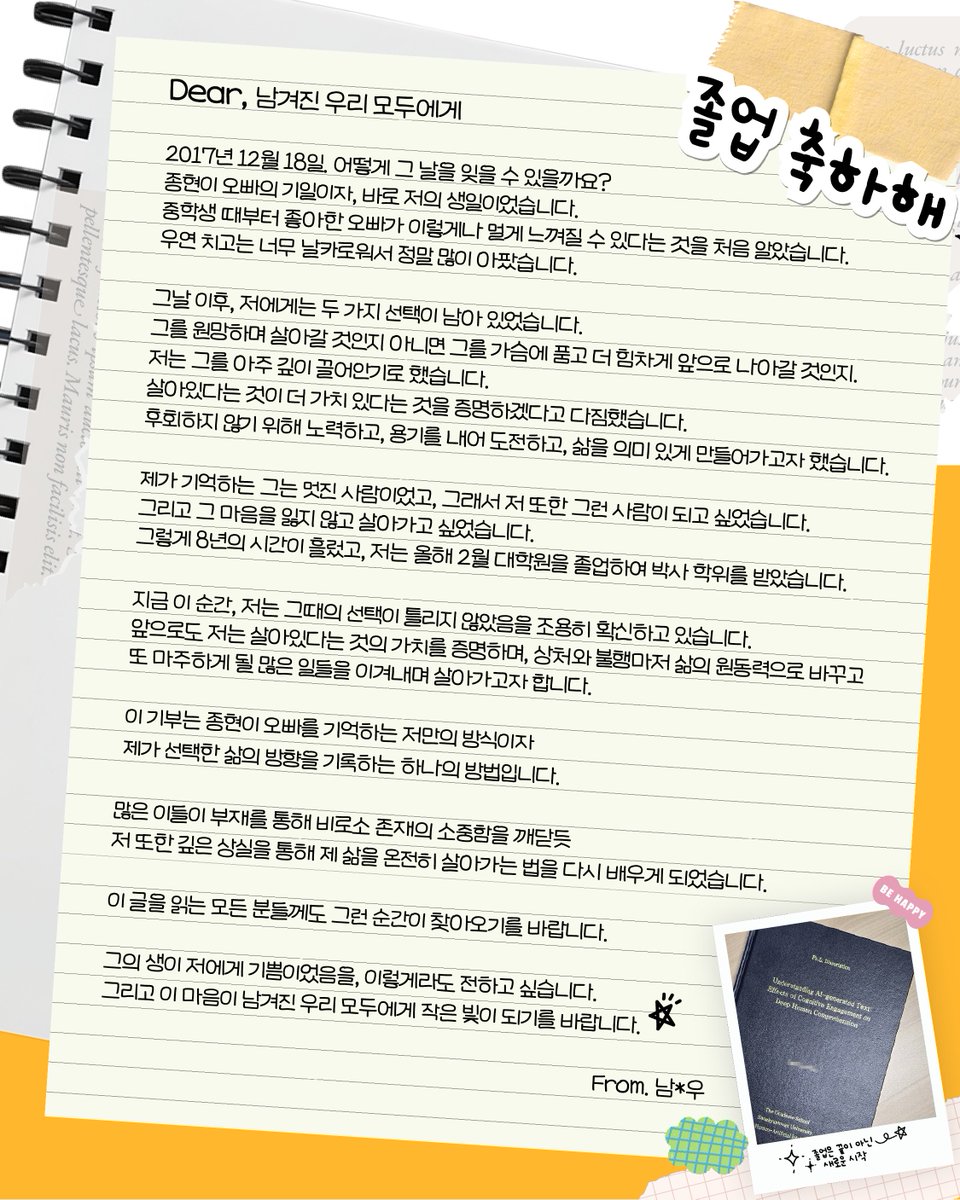 Dear, 남겨진 우리 모두에게
졸업 축하해
2017년 12월 18일. 어떻게 그 날을 잊을 수 있을까요?
종현이 오빠의 기일이자, 바로 저의 생일이었습니다.
중학생 때부터 좋아한 오빠가 이렇게나 멀게 느껴질 수 있다는 것을 처음 알았습니다.
우연 치고는 너무 날카로워서 정말 많이 아팠습니다.
그날 이후, 저에게는 두 가지 선택이 남아 있었습니다.
그를 원망하며 살아갈 것인지 아니면 그를 가슴에 품고 더 힘차게 앞으로 나아갈 것인지.
저는 그를 아주 깊이 끌어안기로 했습니다.
살아있다는 것이 더 가치 있다는 것을 증명하겠다고 다짐했습니다.
후회하지 않기 위해 노력하고, 용기를 내어 도전하고, 삶을 의미 있게 만들어가고자 했습니다.
제가 기억하는 그는 멋진 사람이었고, 그래서 저 또한 그런 사람이 되고 싶었습니다.
그리고 그 마음을 잃지 않고 살아가고 싶었습니다.
그렇게 8년의 시간이 흘렀고, 저는 올해 2월 대학원을 졸업하여 박사 학위를 받았습니다.
지금 이 순간, 저는 그때의 선택이 틀리지 않았음을 조용히 확신하고 있습니다.
앞으로도 저는 살아있다는 것의 가치를 증명하며, 상처와 불행마저 삶의 원동력으로 바꾸고
또 마주하게 될 많은 일들을 이겨내며 살아가고자 합니다.
이 기부는 종현이 오빠를 기억하는 저만의 방식이자
제가 선택한 삶의 방향을 기록하는 하나의 방법입니다.
많은 이들이 부재를 통해 비로소 존재의 소중함을 깨닫듯
저 또한 깊은 상실을 통해 제 삶을 온전히 살아가는 법을 다시 배우게 되었습니다.
이 글을 읽는 모든 분들께도 그런 순간이 찾아오기를 바랍니다.
그의 생이 저에게 기쁨이었음을, 이렇게라도 전하고 싶습니다.
그리고 이 마음이 남겨진 우리 모두에게 작은 빛이 되기를 바랍니다.
From. 남*우
BE HAPPY
Ph.D. Dissertation
Understanding AI-generated Text:
Effects of Cognitive Engagement on
Deep Human Comprehension
The Graduate School
University
졸업은 끝이 아닌
새로운 시작
pellentesque lacus. Mauris non facilisis elit
luctus